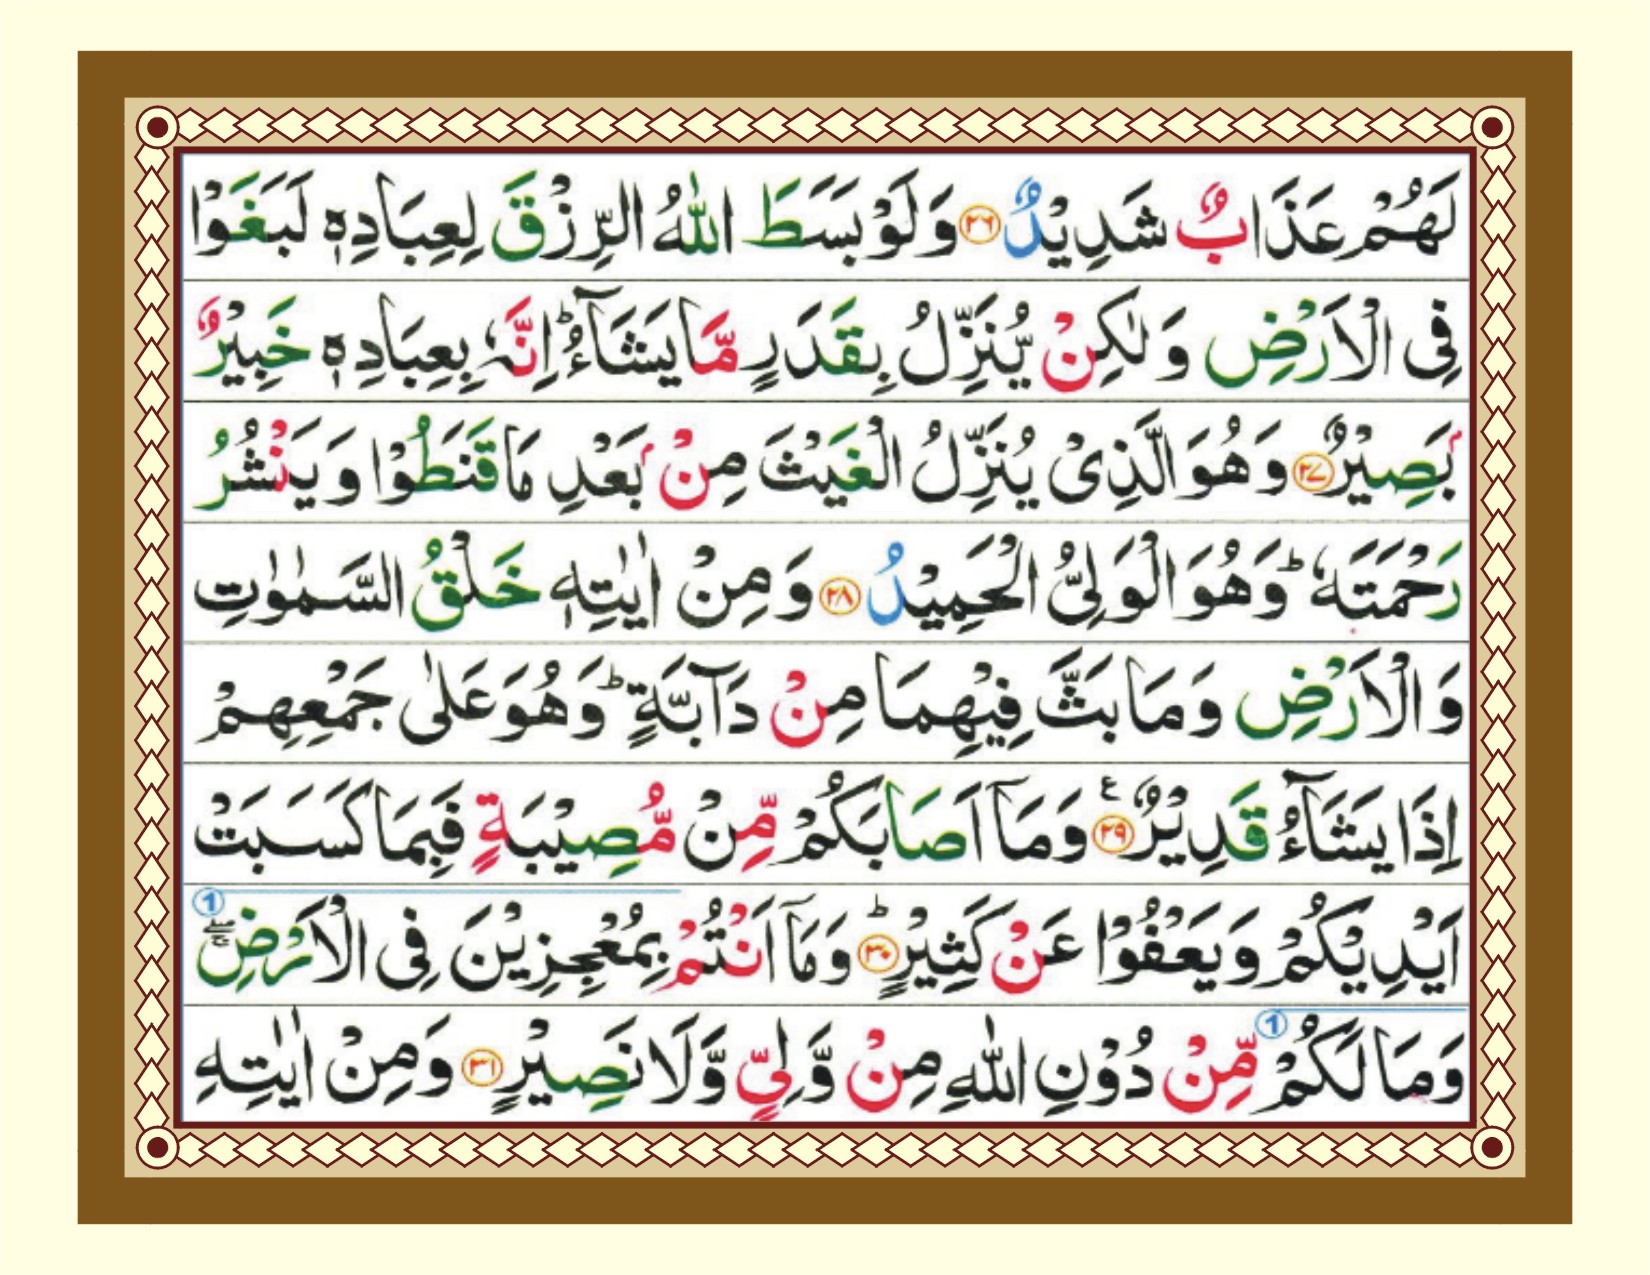 لَهُمْ عَذَابٌ شَدِيْدٌ ﴿۲۶﴾ وَلَوْ بَسَطَ اللّٰهُ الرِّزْقَ لِعِبَادِهٖ لَبَغَوْا
فِى الْاَرْضِ وَلٰكِنْ يُّنَزِّلُ بِقَدَرٍ مَّا يَشَآءُ ؕ اِنَّهٗ بِعِبَادِهٖ خَبِيْرٌۢ
بَصِيْرٌ ﴿۲۷﴾ وَهُوَ الَّذِىْ يُنَزِّلُ الْغَيْثَ مِنْۢ بَعْدِ مَا قَنَطُوْا وَيَنْشُرُ
رَحْمَتَهٗ ؕ وَهُوَ الْوَلِىُّ الْحَمِيْدُ ﴿۲۸﴾ وَمِنْ اٰيٰتِهٖ خَلْقُ السَّمٰوٰتِ
وَالْاَرْضِ وَمَا بَثَّ فِيْهِمَا مِنْ دَآبَّةٍ ؕ وَهُوَ عَلٰى جَمْعِهِمْ
اِذَا يَشَآءُ قَدِيْرٌ ﴿۲۹﴾ ع وَمَاۤ اَصَابَكُمْ مِّنْ مُّصِيْبَةٍ فَبِمَا كَسَبَتْ
اَيْدِيْكُمْ وَيَعْفُوْا عَنْ كَثِيْرٍ ؕ ﴿۳۰﴾ وَمَاۤ اَنْتُمْ بِمُعْجِزِيْنَ فِى الْاَرْضِ ۖۚ 1
وَمَا لَكُمْ 1 مِّنْ دُوْنِ اللّٰهِ مِنْ وَّلِىٍّ وَّلَا نَصِيْرٍ ﴿۳۱﴾ وَمِنْ اٰيٰتِهِ